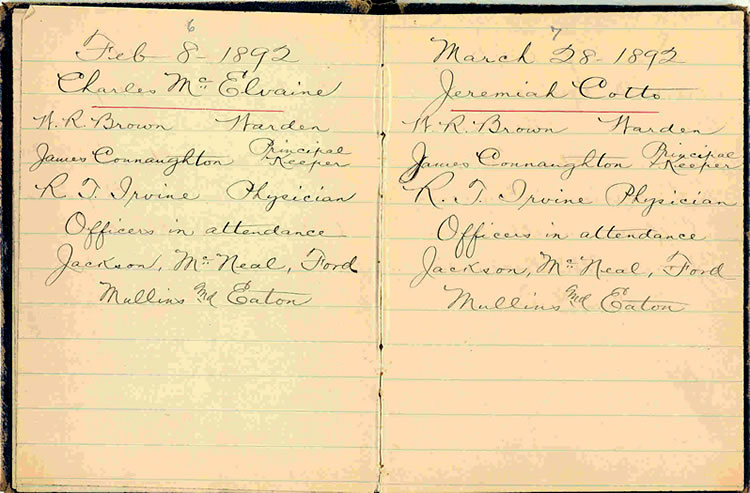 6
Feb 8 - 1892
Charles Mc Elvaine
W. R. Brown Warden
James Connaughton Principal Keeper
R. T. Irvine Physician
Officers in attendance
Jackson, Mc Neal, Ford
Mullins and Eaton
7
March 28 - 1892
Jeremiah Cotto
W. R. Brown Warden
James Connaughton Principal Keeper
R. T. Irvine Physician
Officers in attendance
Jackson, Mc Neal, Ford
Mullins and Eaton